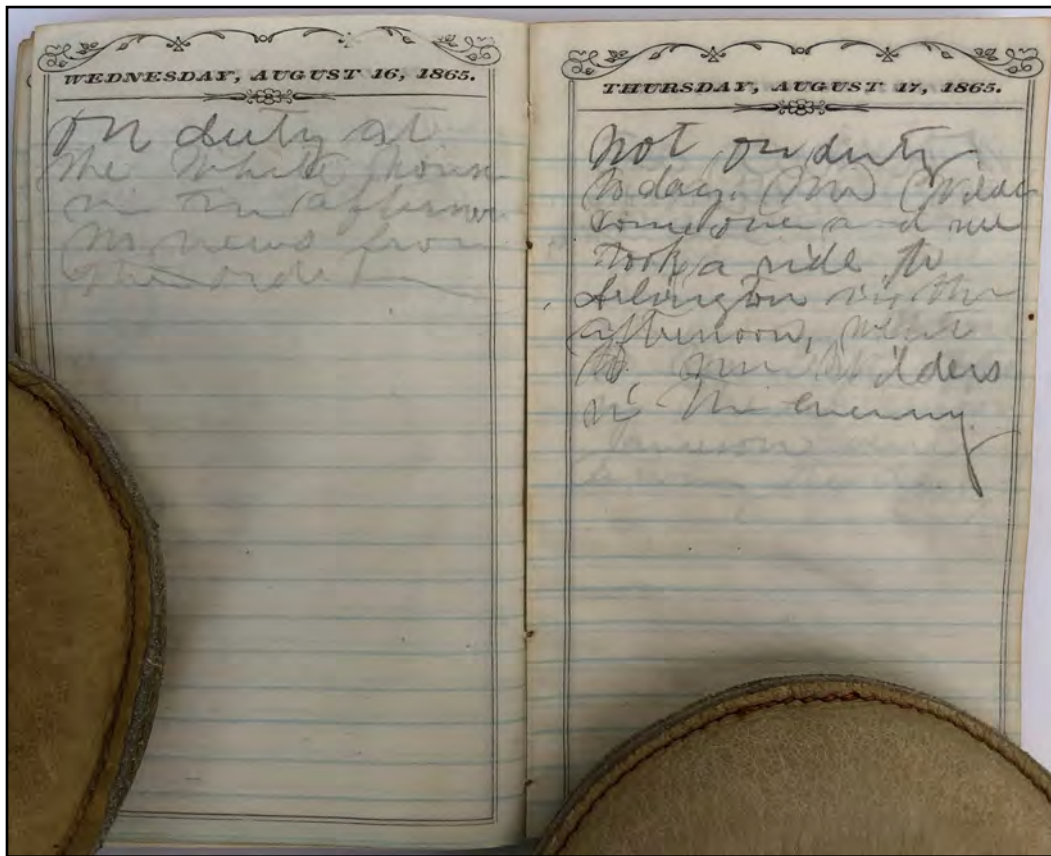 WEDNESDAY, AUGUST 16, 1865.
On duty at
the White House
in the afternoon
no news from
the
THURSDAY, AUGUST 17, 1865.
Not on duty
today. Mr
some one and me
took a ride to
Arlington in the
afternoon, went
to
in the evening